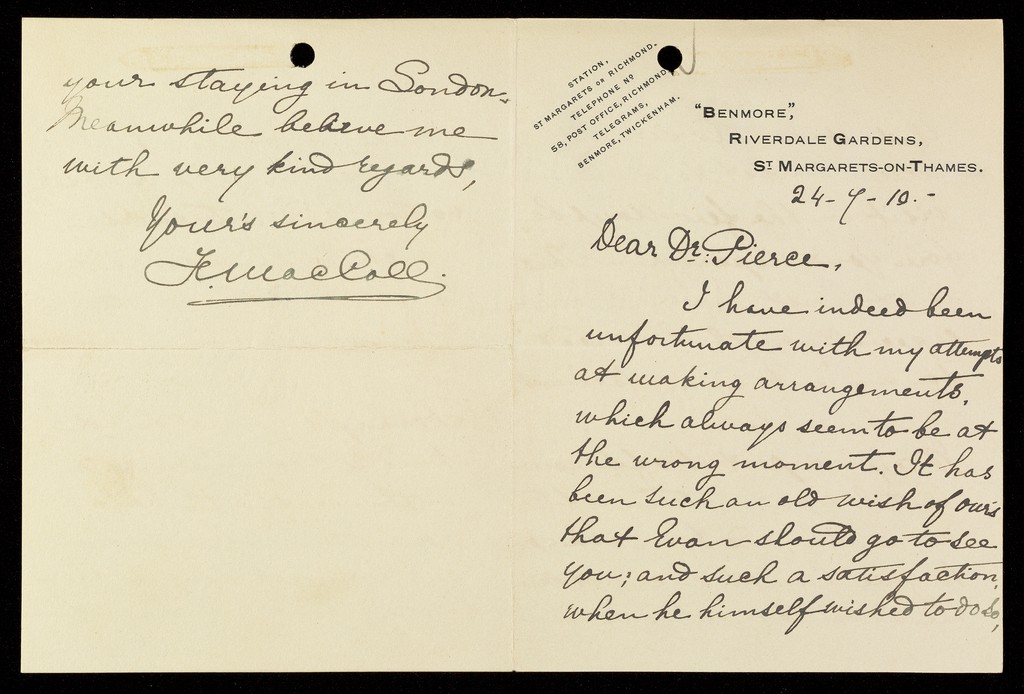 STATION,
ST MARGARETS OR RICHMOND.
TELEPHONE No
58, POST OFFICE, RICHMOND.
TELEGRAMS,
BENMORE, TWICKENHAM.
"BENMORE",
RIVERDALE GARDENS,
ST MARGARETS-ON-THAMES.
24-7-10.-
Dear Dr: Pierce,
I have indeed been
unfortunate with my attempts
at making arrangements,
which always seem to be at
the wrong moment. It has
been such an old wish of ours
that Evan should go to see
you; and such a satisfaction,
when he himself wished to do so,
your staying in London.
Meanwhile believe me
with very kind regards,
Your's sincerely
F. MacColl.